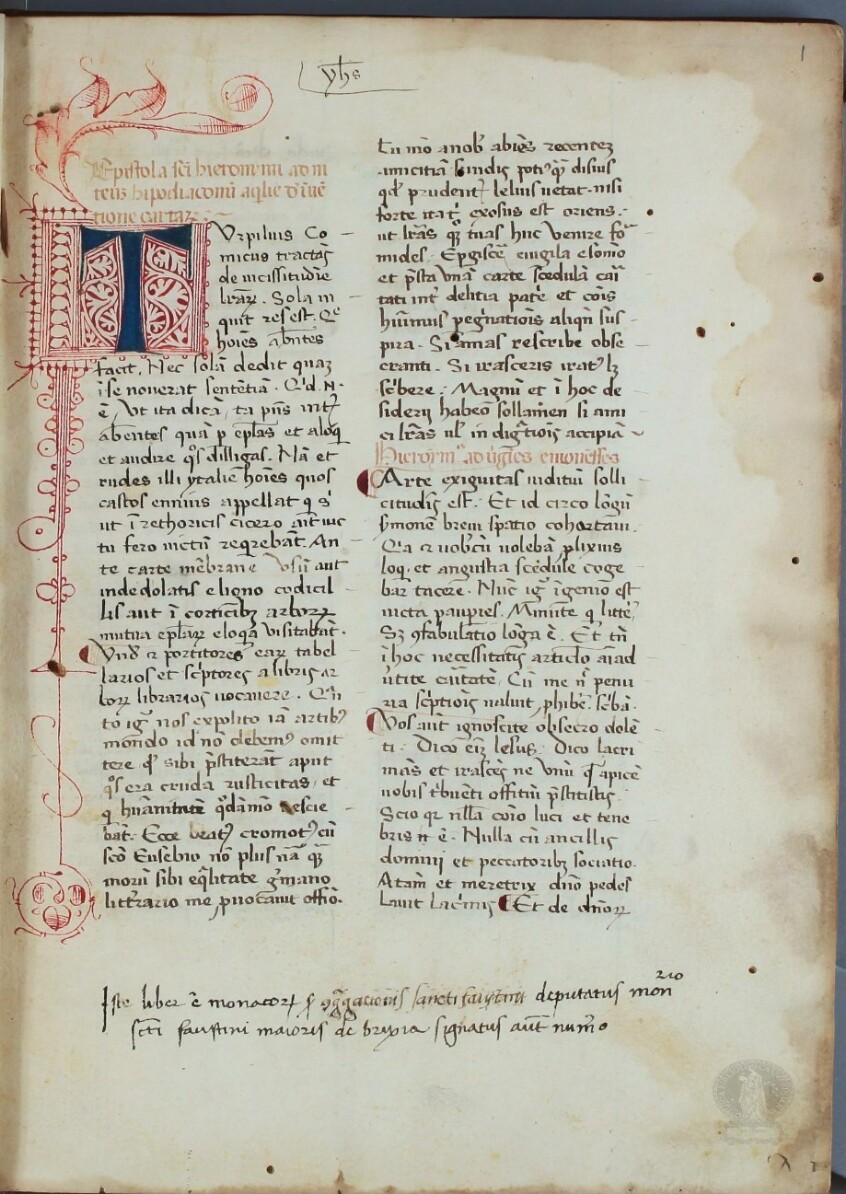 yhs
1
Epistola sci hieronimi ad ni
teuz hipodiaconu aqlie d' iuē
tione cartar
TVrpilius Co
micus tractās
de uicissitudīe
lrar. Sola in
quit res est. Qͤ
hoīes abntes
facit. Nec solā dedit quaz
ī se nouerat sententiā. Q'd. N.
ē, Vt ita dicā, ta pn̄s int̄
abentes quā p eplas et aloq
et audire qͦs dilligas. Nā et
rudes illi ytalie hoīes quos
castos ennius appellat q s'
ut ī rethoricis cicero ait uic
tu fero uictū reqrebāt. An
te carte mēbrane usū aut
inde dolatis e ligno codicil
lis aut ī corticibꝫ arborꝝ
mutua eplarꝝ eloqa uisitabāt.
Vnd' ⁊ portitores earꝝ tabel
larios et scͥptores a libris ar
borꝝ librarios uocauere. Qͣn
to igͬ nos expolito iā artibꝰ
mondo id nō debemꝰ omit
tere qͩ sibi pͬstiterāt aput
qͦs era cruda rusticitas, et
q huānitatē qͦdāmō nescie
bāt. Ecce beatꝰ cromotꝰ cū
scō Eusebio nō plus nͣā qͣꝫ
morū sibi eqͣlitate gͬmano
litterario me ꝓuocauit offio.
Tu mō a nobꝰ abiēs recentez
amicitiā scindis potiꝰ qͣ disius
qd' prudentͬ lelius uetat. nisi
forte ita tͥ exosus est oriens.
ut lrās qͣꝫ tuas huc uenire foͬ
mides. Expgiscē euigila e somno
et pͬsta unā carte scedulā caͬi
tati intͬ delitia patͥe et cōis
hūimus pegͥnationis aliqn sus
pira. Si amas rescribe obse
cranti. Si irasceris iratꝰ lꝫ
scͥbere. Magnū et ī hoc de
siderij habeo sollamen si ami
ci lrās ul' indigͣtiois accipiā
Hieronimꝰ ad ūgīes emonēses
Carte exiguitas inditiū solli
citudīs est. Et id circo lōgū
sͬmonē breui spatio cohartaui.
Qͥa ⁊ uobcū uolebā ꝓlixius
loqͥ. et angustia scedule coge
bat tacere. Nūc igͬ īgenio est
uicta paupies. Minute q litteͬ
Sꝫ ɔfabulatio lōga ē. Et tn̄
ī hoc necessitatis articlo aīad
ūtite caritatē, Cū me nͨ penu
ria scͥptiois ualuit ꝓhibeͬ scͥbeͬ.
Vos aūt ignoscite obsecro dolē
ti. Dico eiꝫ lesus. Dico lacri
mās et irascēs ne unū qͥdē apicē
uobis tͥbuēti offitiū pͬstitistis.
Scio qꝛ nlla cōio luci et tene
bris n̄ ē. Nulla cū ancillis
domini et peccatoribꝫ sociatio.
Atam et meretrix dno pedes
lauit lacimis Et de dnorꝝ
Iste liber ē monacorꝝ ꝯgregacionis sancti faustini deputatus mon rio
scti faustini maioris de brixia signatus aut numero